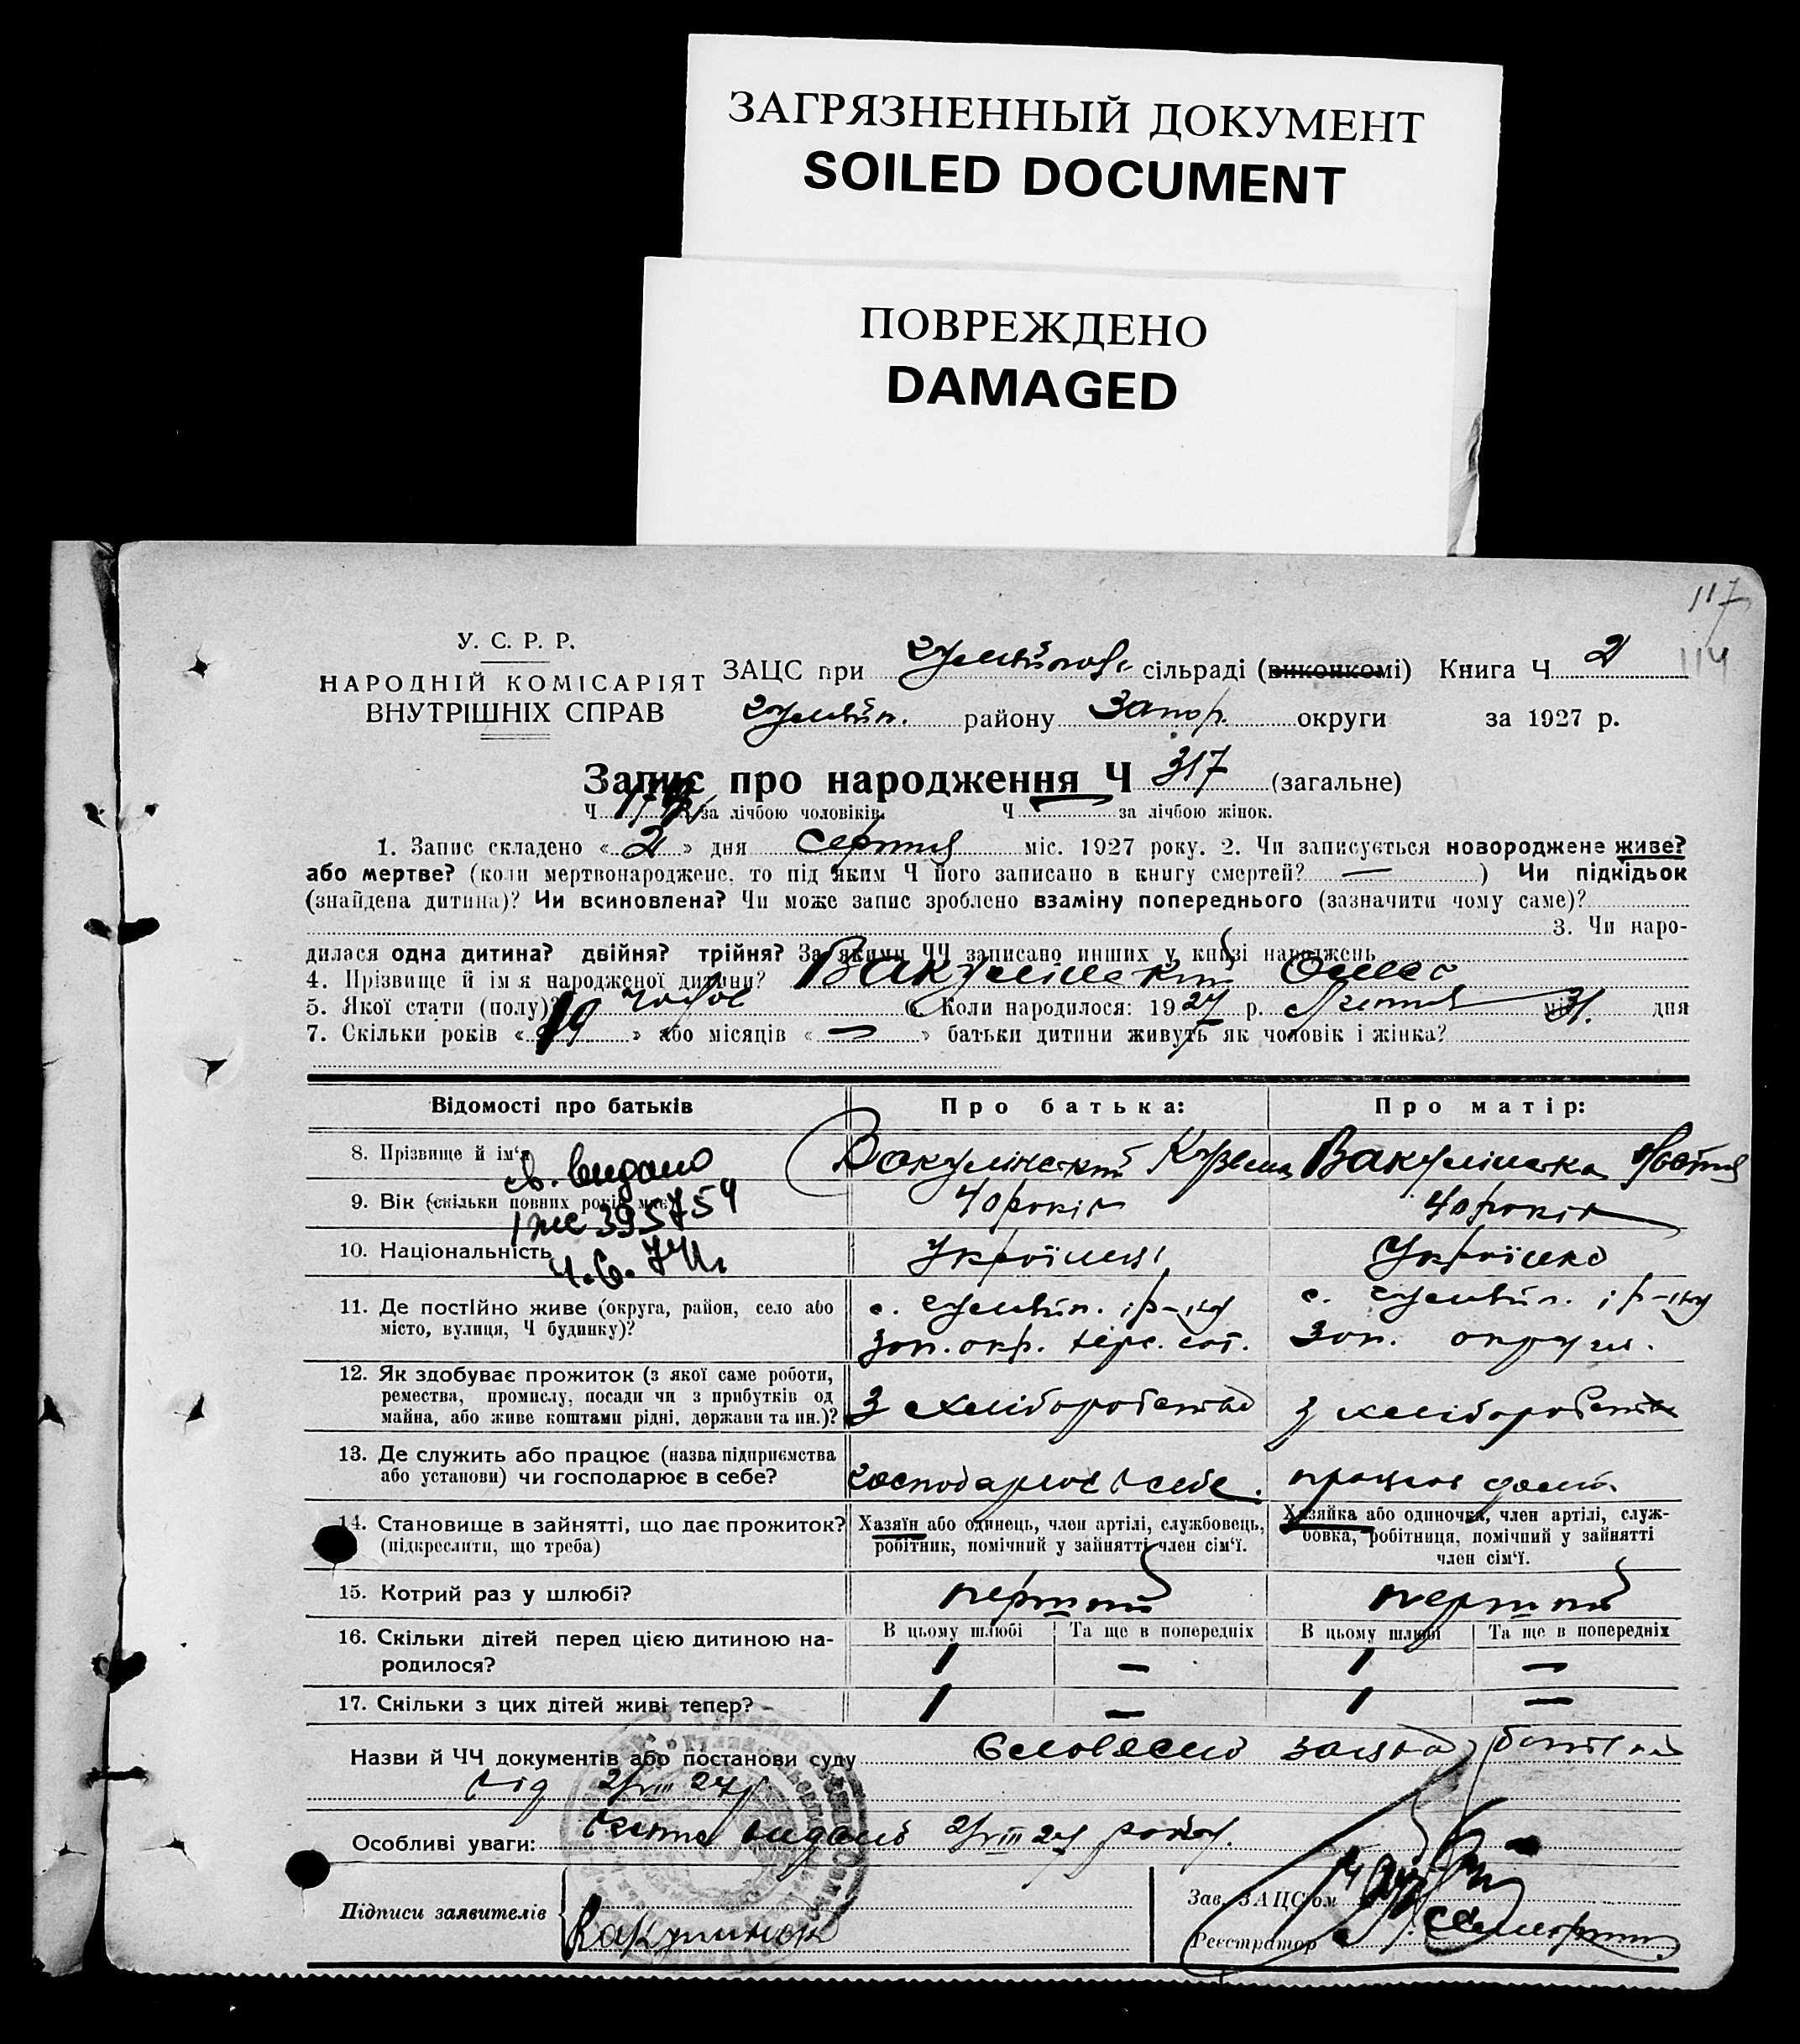 ЗАГРЯЗНЕННЫЙ ДОКУМЕНТ
SOILED DOCUMENT
ПОВРЕЖДЕНО
DAMAGED
117
114
У. С. Р. Р.
НАРОДНІЙ КОМІСАРІЯТ
ВНУТРІШНІХ СПРАВ
ЗАЦС при Гуляйпол. сільраді (виконкомі) Книга Ч 2
Гуляйп. району Запор. округи за 1927 р.
Запис про народження Ч 317 (загальне)
Ч за лічбою чоловіків. Ч за лічбою жінок.
1. Запис складено « 2 » дня серпня міс. 1927 року. 2. Чи записується новороджене живе?
або мертве? (коли мертвонароджене, то під яким Ч його записано в книгу смертей? — ) Чи підкідьок
(знайдена дитина)? Чи всиновлена? Чи може запис зроблено взаміну попереднього (зазначити чому саме)?
3. Чи наро-
дилася одна дитина? двійня? трійня? За якими ЧЧ записано инших у книзі народжень
4. Прізвище й ім'я народженої дитини? Вакулінський
5. Якої стати (полу)? чолов 6. Коли народилося: 1927 р. Липня міс. 31. дня
7. Скільки років « » або місяців « — » батьки дитини живуть як чоловік і жінка?
Відомості про батьків
Про батька:
Про матір:
8. Прізвище й ім'я
Вакулінський Кузьма
Вакулінська
св. видано
9. Вік (скільки повних років має)
40 років
40 років
395754
10. Національність
Українець
Українка
11. Де постійно живе (округа, район, село або
місто, вулиця, Ч будинку)?
с. Гуляйп. і р-ну
Зап. окр.
с. Гуляйп. і р-ну
Зап. округи.
12. Як здобуває прожиток (з якої саме роботи,
ремества, промислу, посади чи з прибутків од
майна, або живе коштами рідні, держави та ин.)?
З хліборобства
З хліборобства
13. Де служить або працює (назва підприємства
або установи) чи господарює в себе?
господарює в себе.
працює дома
14. Становище в зайнятті, що дає прожиток?
(підкреслити, що треба)
Хазяїн або одинець, член артілі, службовець,
робітник, помічний у зайнятті член сім'ї.
Хазяйка або одиночка, член артілі, служ-
бовка, робітниця, помічний у зайнятті
член сім'ї.
15. Котрий раз у шлюбі?
перший
перший
16. Скільки дітей перед цією дитиною на-
родилося?
В цьому шлюбі
Та ще в попередніх
В цьому шлюбі
Та ще в попередніх
1 — 1 —
17. Скільки з цих дітей живі тепер?
1 — 1 —
Назви й ЧЧ документів або постанови суду словесно заява батька
від 2/VIII 27р
Особливі уваги: видано 2/VIII 27 року.
Підписи заявителів
Зав. ЗАЦС'ом
Реєстратор